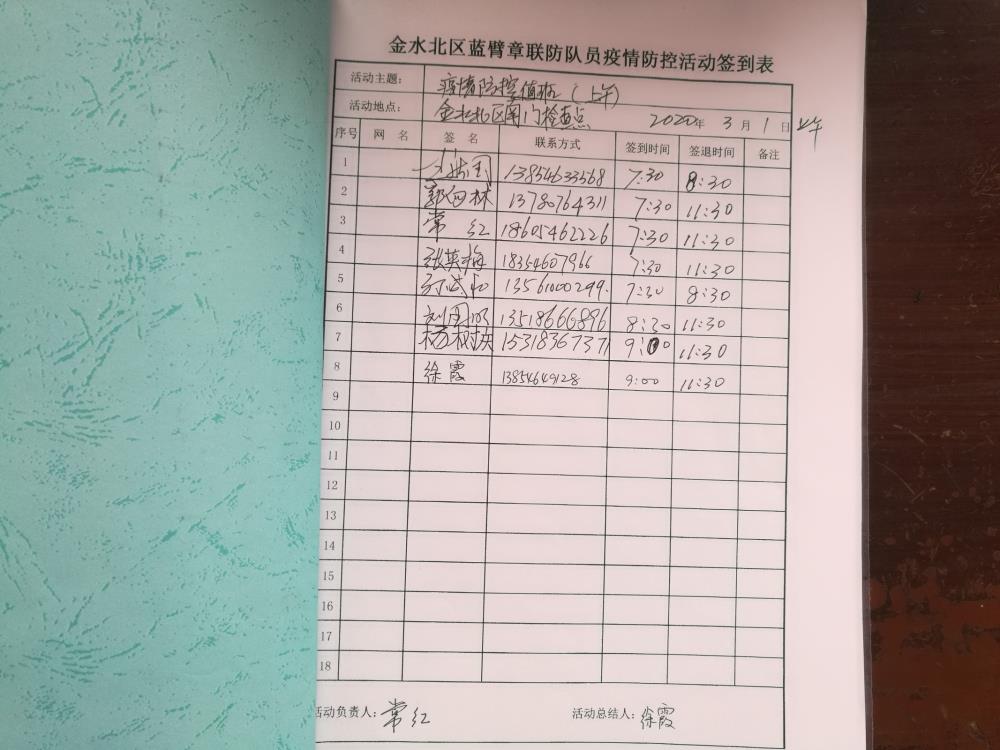 金水北区蓝臂章联防队员疫情防控活动签到表
活动主题： 疫情防控值班（上午）
活动地点： 金水北区南门检查点 2020年 3月 1日 上午
序号 网 名 签 名 联系方式 签到时间 签退时间 备注
1 13854633568 7:30 8:30
2 13780764311 7:30 11:30
3 常 红 18605462226 7:30 11:30
4 张英梅 18354607966 7:30 11:30
5 13561000299. 7:30 8:30
6 刘国明 13518666896 8:30 11:30
7 杨树庆 15318367371 9:00 11:30
8 徐霞 13854649128 9:00 11:30
9
10
11
12
13
14
15
16
17
18
活动负责人： 常红 活动总结人： 徐霞